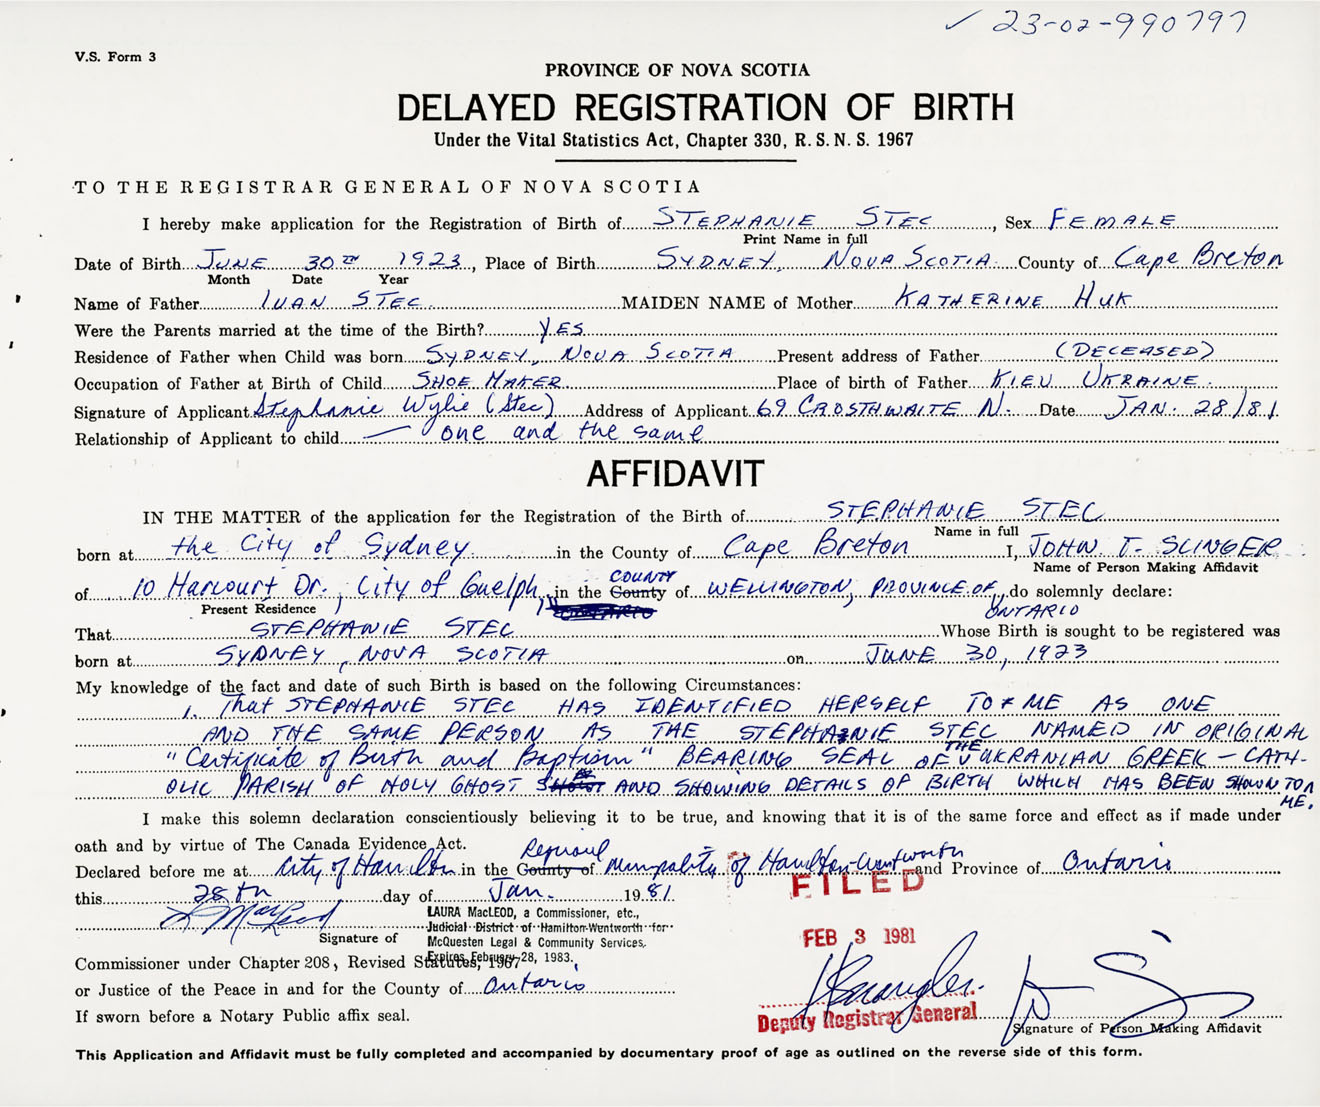 ✓ 23-02-990797
V.S. Form 3
PROVINCE OF NOVA SCOTIA
DELAYED REGISTRATION OF BIRTH
Under the Vital Statistics Act, Chapter 330, R.S.N.S. 1967
TO THE REGISTRAR GENERAL OF NOVA SCOTIA
I hereby make application for the Registration of Birth of STEPHANIE STEC, Sex FEMALE
Print Name in full
Date of Birth JUNE 30TH 1923, Place of Birth SYDNEY, NOVA SCOTIA County of Cape Breton
Month Date Year
Name of Father IVAN STEC MAIDEN NAME of Mother KATHERINE HUK
Were the Parents married at the time of the Birth? YES
Residence of Father when Child was born SYDNEY, NOVA SCOTIA Present address of Father (DECEASED)
Occupation of Father at Birth of Child SHOE MAKER Place of birth of Father KIEV UKRAINE.
Signature of Applicant Stephanie Wylie (Stec) Address of Applicant 69 CROSTHWAITE N. Date JAN. 28/81
Relationship of Applicant to child — one and the same
AFFIDAVIT
IN THE MATTER of the application for the Registration of the Birth of STEPHANIE STEC
Name in full
born at the City of Sydney in the County of Cape Breton I, JOHN T. SLINGER
Name of Person Making Affidavit
COUNTY
of 10 Harcourt Dr., City of Guelph, in the County of WELLINGTON, PROVINCE OF do solemnly declare:
Present Residence ONTARIO
That STEPHANIE STEC Whose Birth is sought to be registered was
born at SYDNEY, NOVA SCOTIA on JUNE 30, 1923
My knowledge of the fact and date of such Birth is based on the following Circumstances:
1. That STEPHANIE STEC HAS IDENTIFIED HERSELF TO ME AS ONE
AND THE SAME PERSON AS THE STEPHANIE STEC NAMED IN ORIGINAL
"Certificate of Birth and Baptism" BEARING SEAL OF THE UKRANIAN GREEK-CATH-
OLIC PARISH OF HOLY GHOST AND SHOWING DETAILS OF BIRTH WHICH HAS BEEN SHOWN TO
ME.
I make this solemn declaration conscientiously believing it to be true, and knowing that it is of the same force and effect as if made under
oath and by virtue of The Canada Evidence Act.
Regional
Declared before me at City of Hamilton in the County of Municipality of Hamilton-Wentworth and Province of Ontario
this 28th day of Jan. 1981
FILED
L MacLeod
LAURA MacLEOD, a Commissioner, etc.,
Judicial District of Hamilton-Wentworth for
McQuesten Legal & Community Services.
Expires February 28, 1983.
FEB 3 1981
Signature of
Commissioner under Chapter 208, Revised Statutes, 1967
or Justice of the Peace in and for the County of Ontario
Deputy Registrar General
Signature of Person Making Affidavit
If sworn before a Notary Public affix seal.
This Application and Affidavit must be fully completed and accompanied by documentary proof of age as outlined on the reverse side of this form.